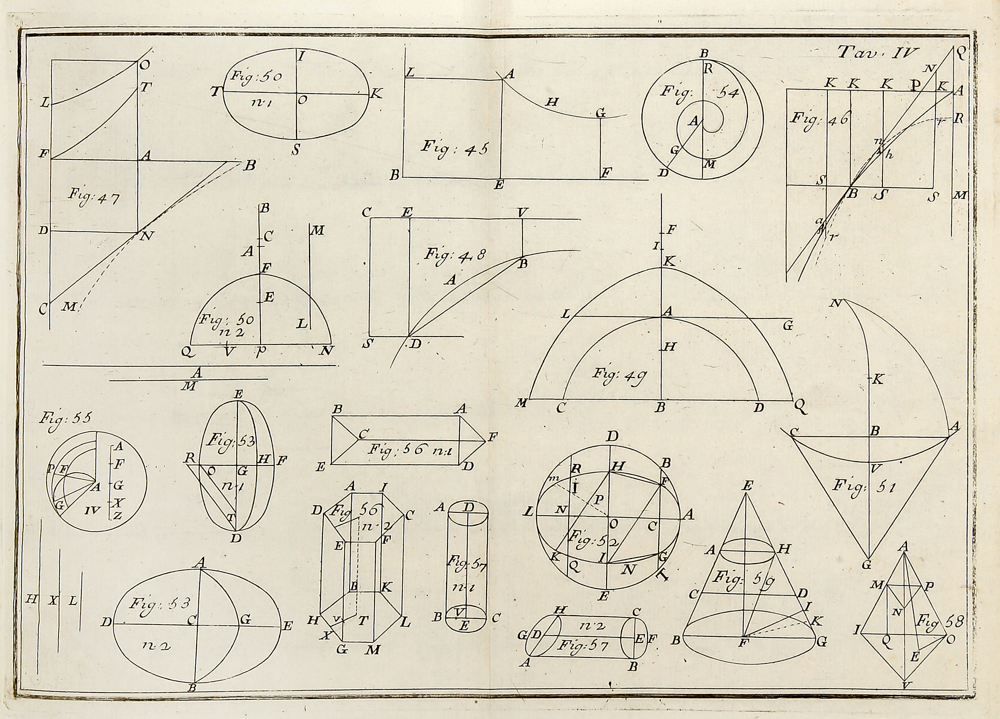 Tav. IV
O
T
L
F
A
B
Fig: 47
D
N
C
M
I
Fig: 50
T
n. 1
O
K
S
L
A
H
G
Fig: 45
B
E
F
B
R
Fig: 54
A
G
M
D
Q
N
K K K P K A
Fig: 46
r
R
n
h
S
B
S
S
M
a
r
B
C
A
M
F
E
Fig: 50
n. 2
L
Q
V
P
N
A
M
C
E
V
Fig: 48
A
B
S
D
F
I
K
L
A
G
H
Fig: 49
M
C
B
D
Q
N
K
C
B
A
V
Fig: 51
G
Fig: 55
A
F
P F
G
A
G
X
IV
Z
H X L
E
Fig: 53
R
O
G
H
F
n. 1
T
D
B
A
C
F
Fig: 56 n. 1
E
D
A
I
D
Fig: 56
C
n. 2
E
F
B
K
H
V
T
L
X
G
M
A
D
Fig: 57
n. 1
B
V
C
E
D
R
H
B
m
I
F
P
L
O
C
A
Fig: 52
K
Q
I
N
G
T
E
H
C
n. 2
G
D
E
F
Fig: 57
A
B
E
A
H
Fig: 59
C
D
I
K
B
F
G
A
M
P
N
Fig: 58
I
Q
O
E
V
A
Fig: 53
D
C
G
E
n. 2
B